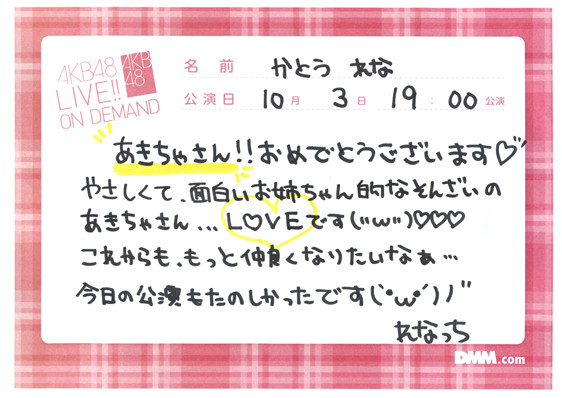 AKB48
LIVE!!
ON DEMAND
AKB
48
名前 かとう れな
公演日 10月 3日 19:00公演
あきちゃさん!!おめでとうございます♡
やさしくて、面白いお姉ちゃん的なそんざいの
あきちゃさん...L♡VEです(''ω'')♡♡♡
これからも、もっと仲良くなりたいなぁ...
今日の公演もたのしかったです(`・ω・´)ノ"
れなっち
DMM.com